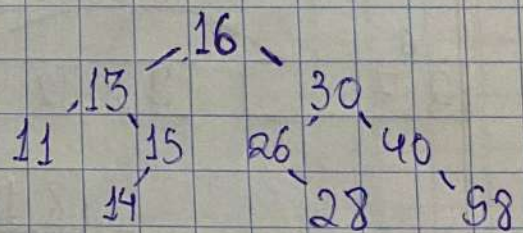 16
13 30
11 15 26 40
14 28 58